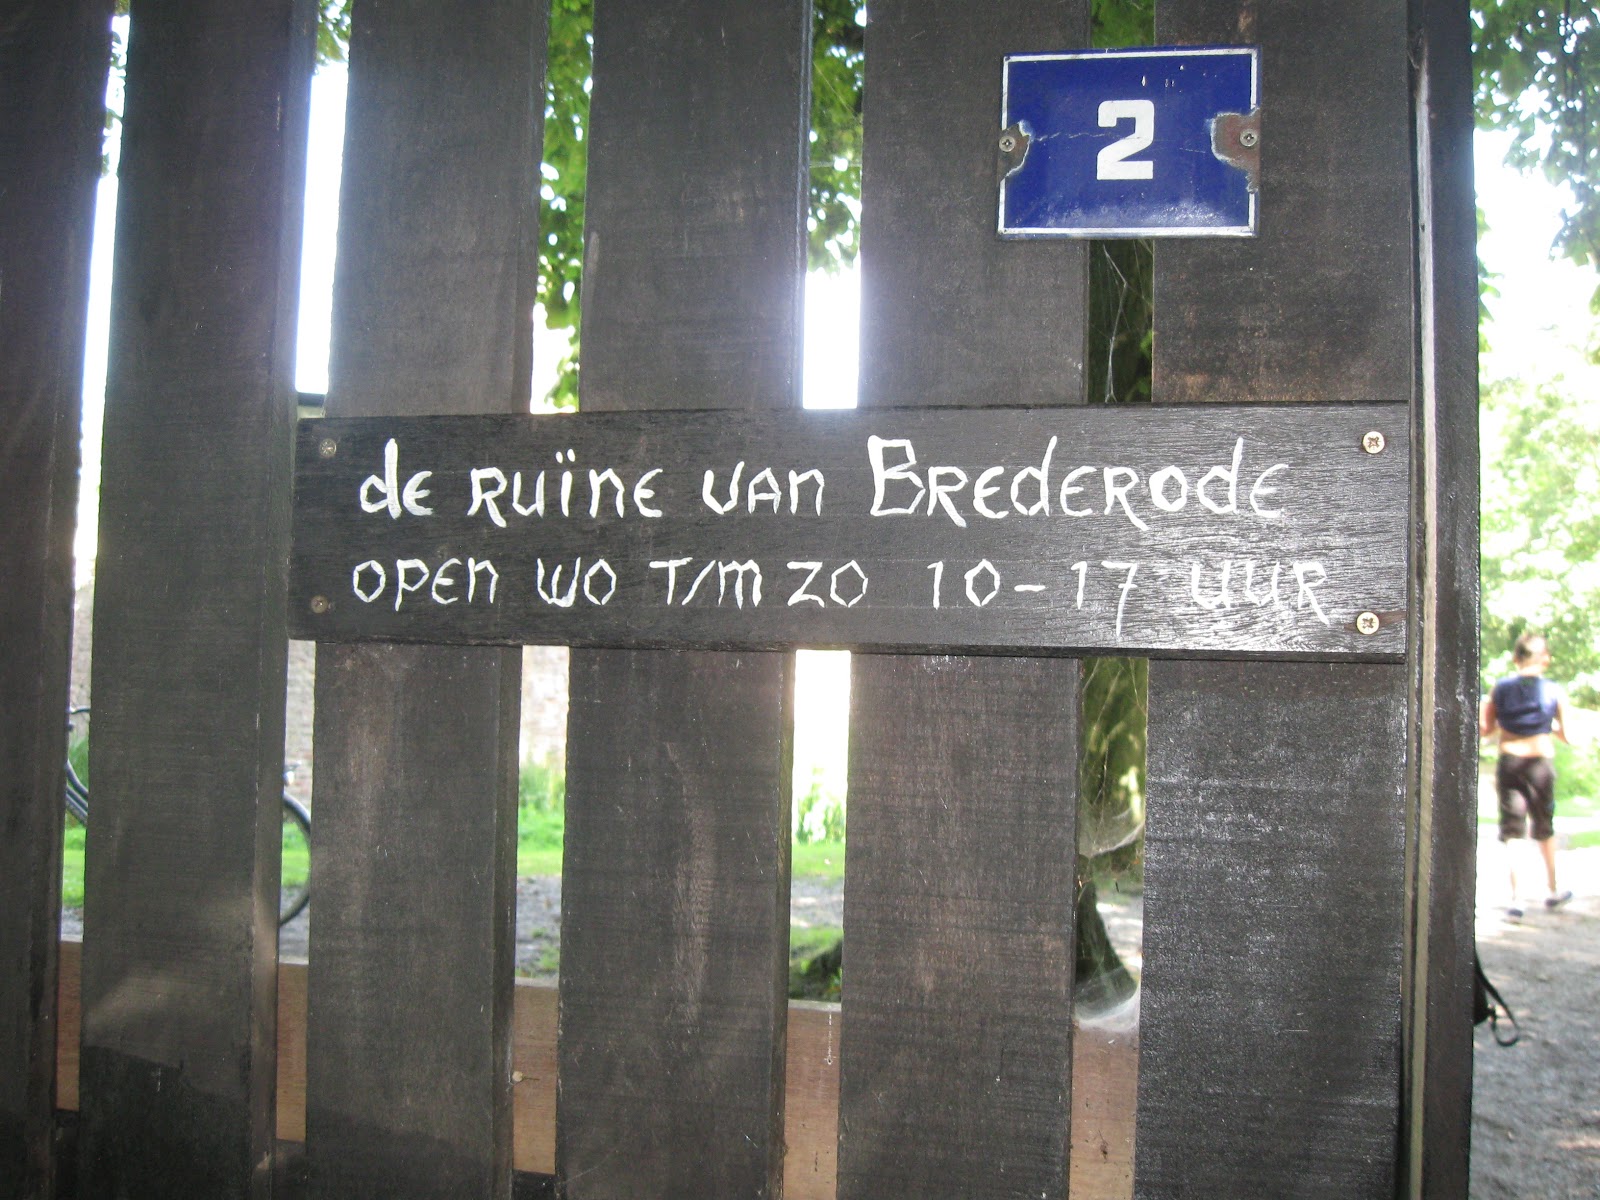 2
de ruïne van Brederode
open wo t/m zo 10-17 uur